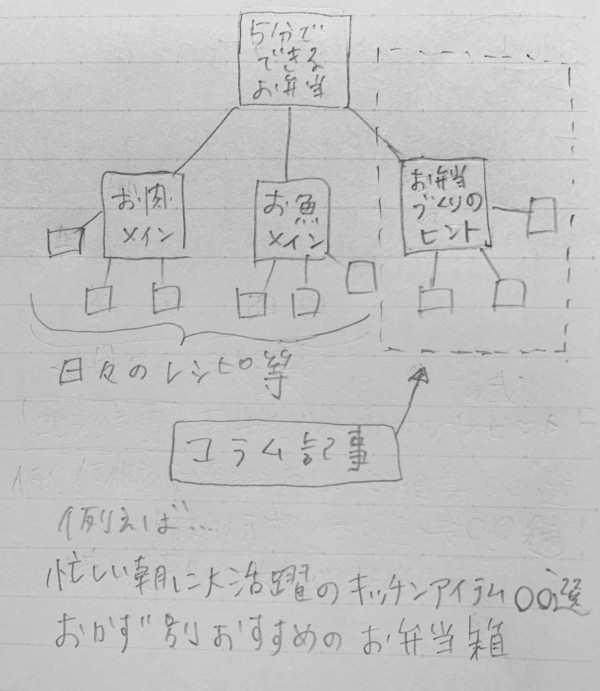 5分で
できる
お弁当
お肉
メイン
お魚
メイン
お弁当
づくりの
ヒント
日々のレシピ等
コラム記事
例えば…
忙しい朝に大活躍のキッチンアイテム〇〇選
おかず別おすすめのお弁当箱